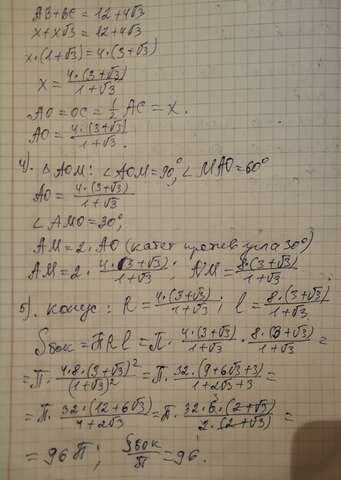 AB+BC = 12+4√3
x+x√3 = 12+4√3
x·(1+√3)=4·(3+√3)
x = 4·(3+√3) / 1+√3
AO=OC= 1/2 AC = x.
AO= 4·(3+√3) / 1+√3.
4). △AOM: ∠AOM=90°, ∠MAO=60°
AO= 4·(3+√3) / 1+√3
∠AMO=30°,
AM=2·AO (катет против угла 30°)
AM=2· 4·(3+√3) / 1+√3; AM= 8·(3+√3) / 1+√3
5). конус: R= 4·(3+√3) / 1+√3; l= 8·(3+√3) / 1+√3,
Sбок=πRl=π· 4·(3+√3) / 1+√3 · 8·(3+√3) / 1+√3 =
=π· 4·8·(3+√3)² / (1+√3)² =π· 32·(9+6√3+3) / 1+2√3+3 =
=π· 32·(12+6√3) / 4+2√3 =π· 32·6·(2+√3) / 2·(2+√3) =
= 96π; Sбок / π =96.